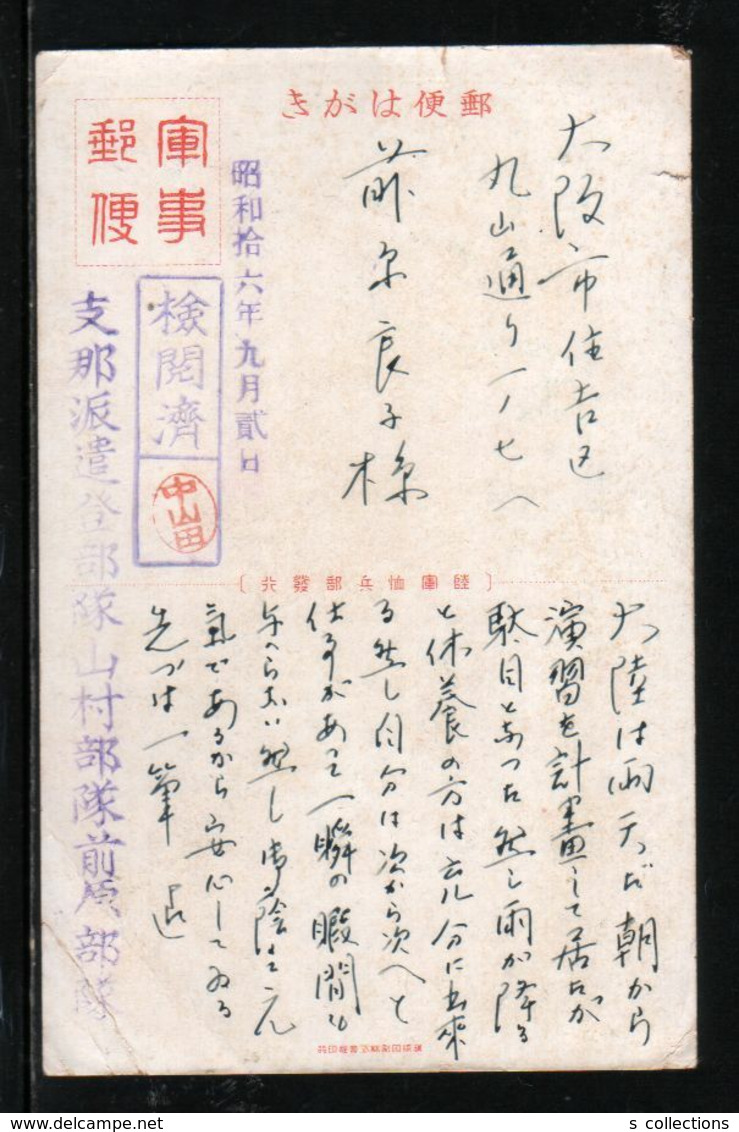 郵便はがき
軍事
郵便
大阪市住吉区
丸山通り一ノ七八
前原良子様
昭和拾六年九月貳日
検閲濟
中山田
支那派遣登部隊山村部隊前原部隊
陸軍恤兵部發行
大陸は雨天だ朝から
演習を計畫して居たが
駄目となつた然し雨が降る
と休養の方は充分に出來
る然し自分は次から次へと
仕事があつて一瞬の暇間も
与へられない然し御陰で元
氣であるから安心してゐる
先づは一筆
s collections